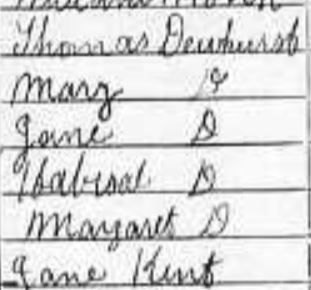 Thomas Dewhurst
Mary D
Jane D
Isabisal D
Margaret D
Jane Kent